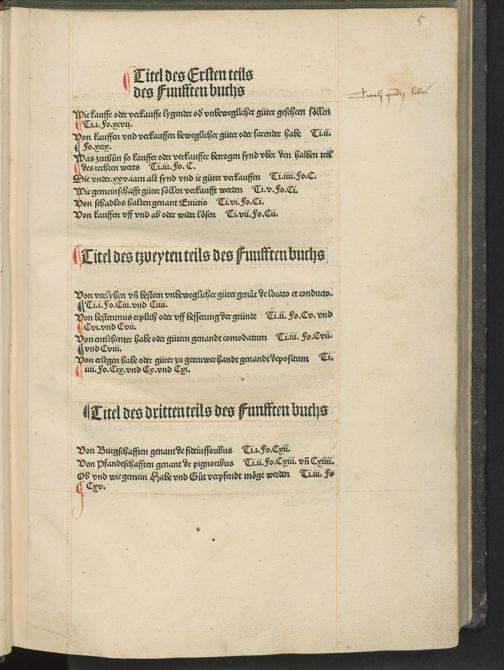 5
Titel des Ersten teils
des Funfften buchs
Wie kauffe oder verkauffe lygender od unbeweglicher güter gescheen söllen
Ti.i. Fo.xcvii.
Von kauffen vnd verkauffen beweglicher güter oder farender habe Ti.ii.
Fo.xcix.
Was zuthůn so kauffer oder verkauffer betrogen synd vber den halben teil
des rechten werts Ti.iii. Fo. C.
Die vnder .xxv. iaren alt synd vnd ir güter verkauffen Ti.iiii. Fo.C.
Wie gemeinschafft güter söllen verkaufft werden Ti.v. Fo.Ci.
Von schadlos halten genant Euictio Ti.vi. Fo.Ci.
Von kauffen vff vnd ab oder wider lösen Ti.vii. Fo.Cii.
Titel des tzveyten teils des Funfften buchs
Von verlyhen vñ besteen vnbeweglicher güter genãt de locato et conducto.
Ti.i. Fo.Ciii. vnd Ciiii.
Von bestentnus erplich oder vff besserung der gründe Ti.ii. Fo.Cv. vnd
Cvi. vnd Cvii.
Von entlehenter habe oder gütern genandt comodatum Ti.iii. Fo.Cvii.
vnd Cviii.
Von erlegen habe oder güter zu getruwer handt genandt depositum Ti.
iiii. Fo.Cix. vnd Cx. vnd Cxi.
Titel des dritten teils des Funfften buchs
Von Burgschafften genant de fideiussoribus Ti.i. Fo.Cxii.
Von Pfandtschafften genant de pignoribus Ti.ii. Fo.Cxiii. vñ Cxiiii.
Ob vnd wie gemein Habe vnd Gůt verpfendt möge werden Ti.iii. Fo
Cxv.